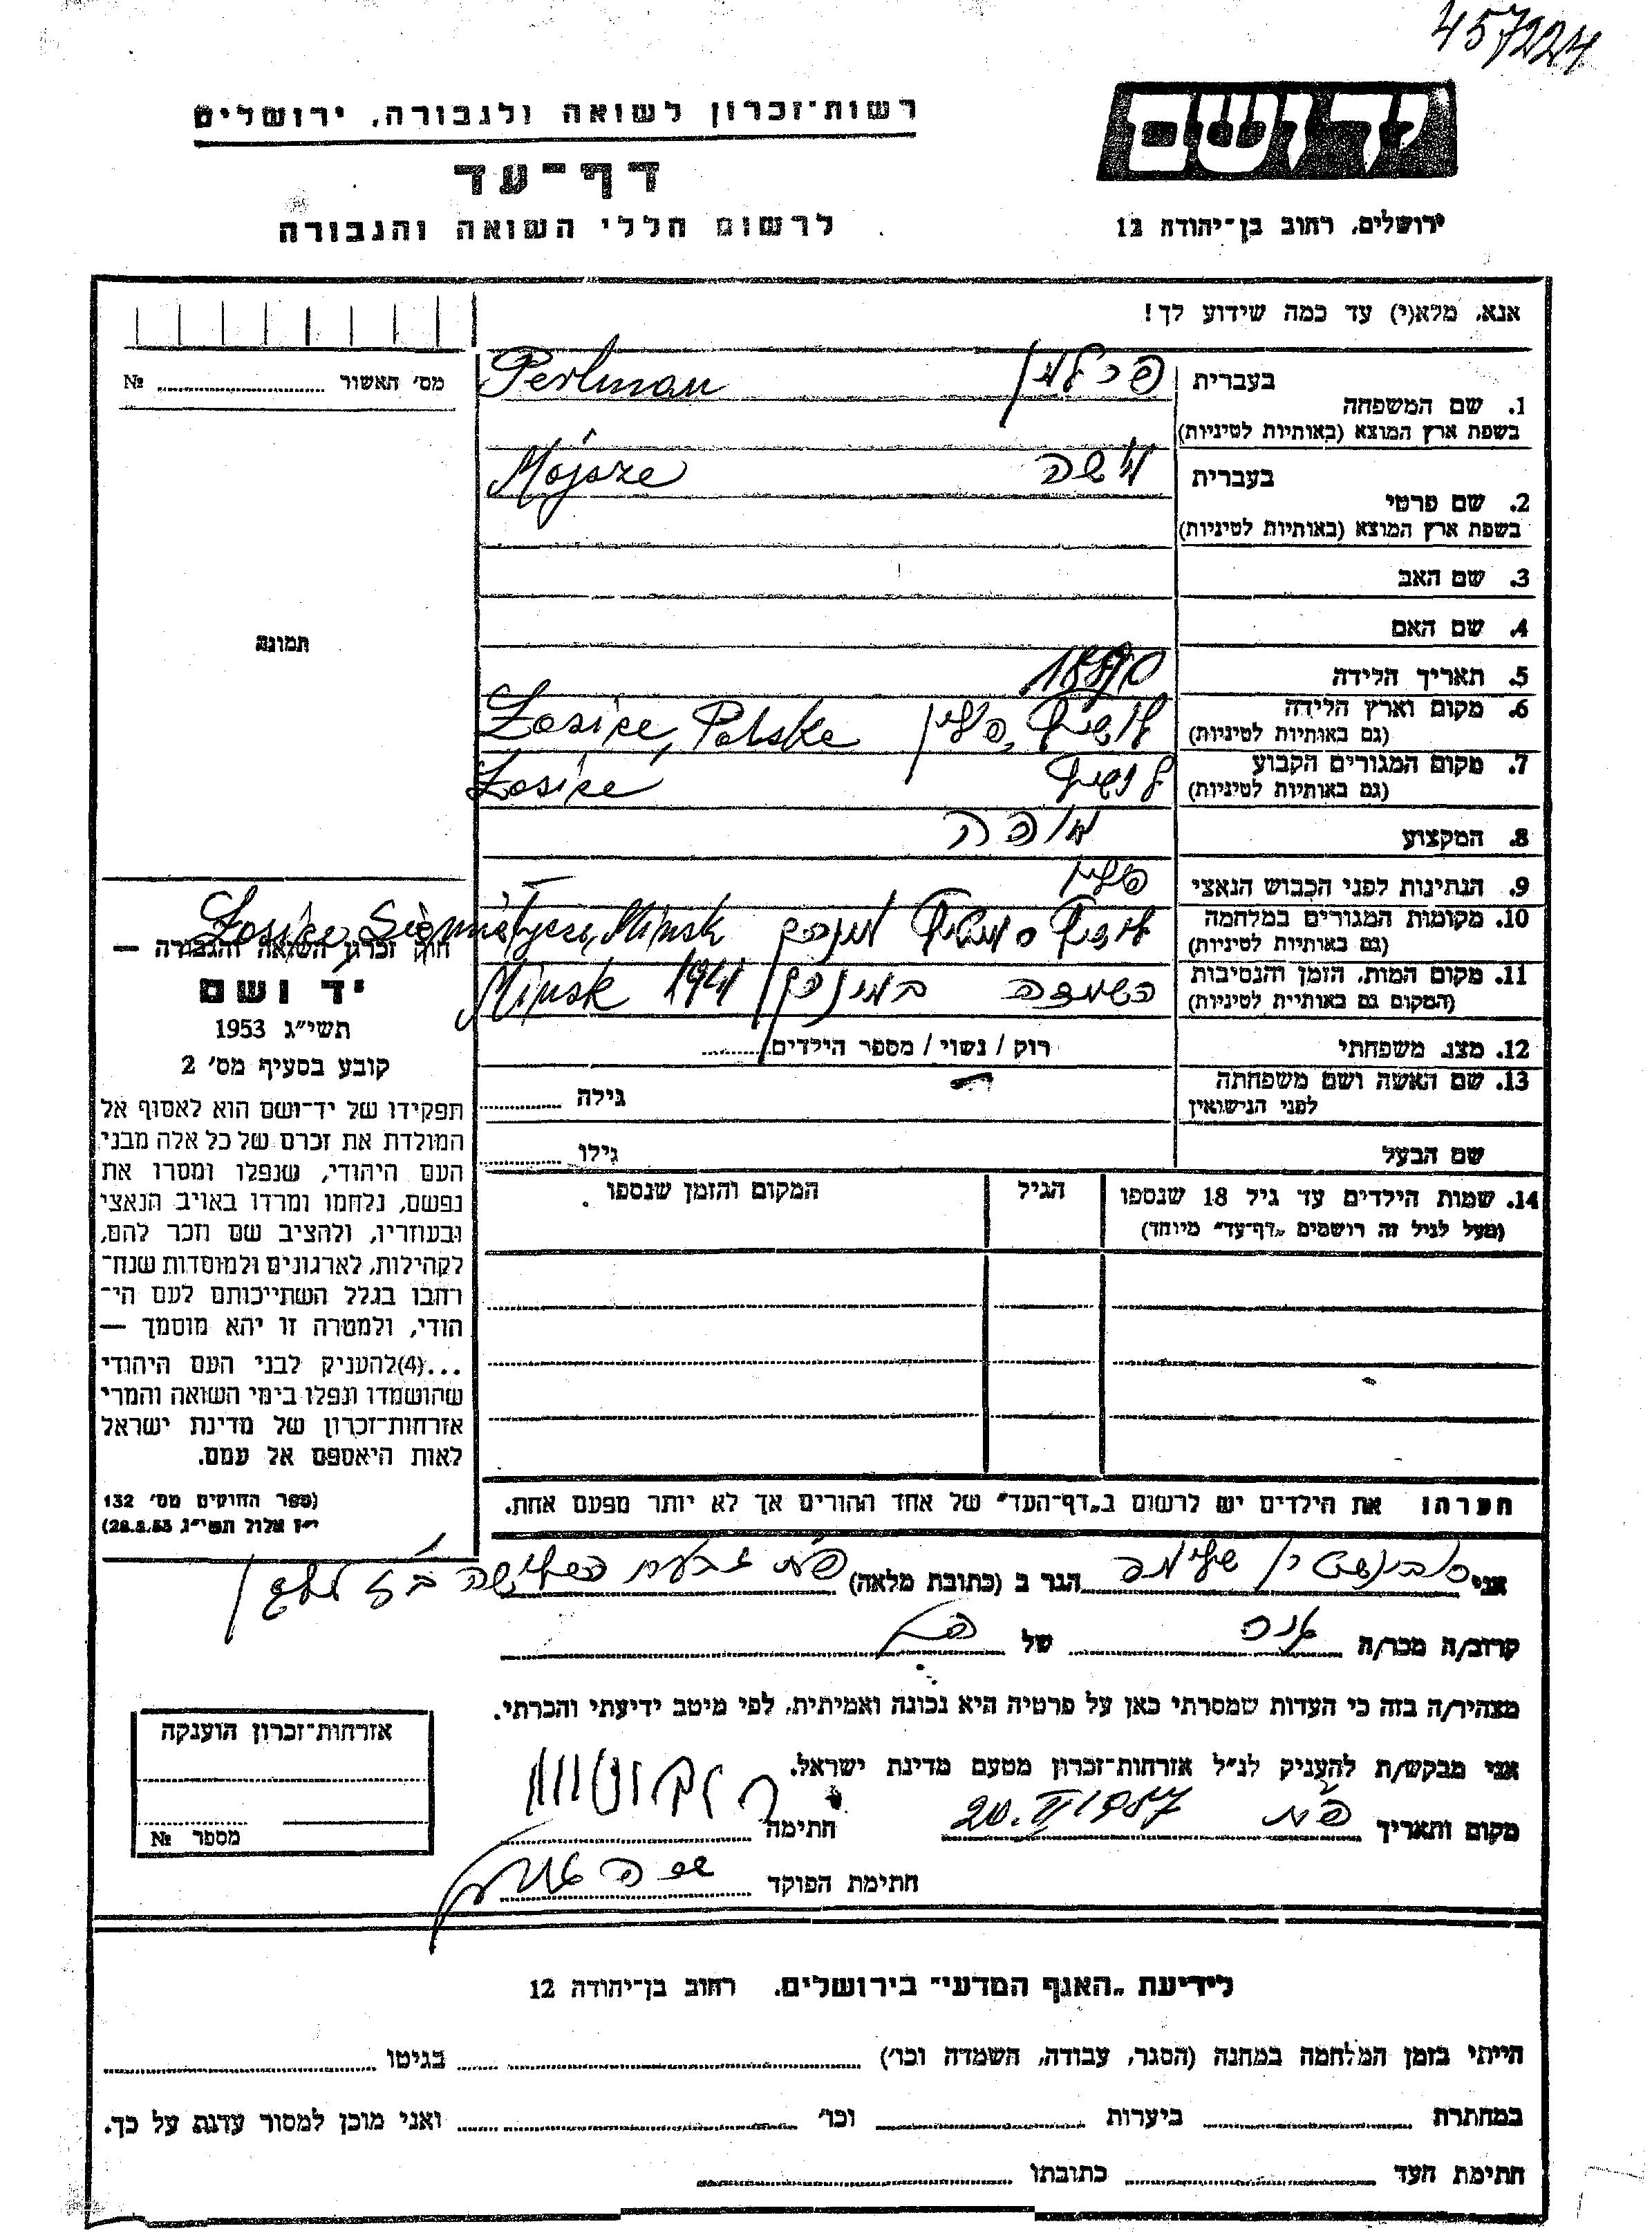 457224
רשות־זכרון לשואה ולגבורה, ירושלים
יד ושם
דף־עד
לרשום חללי השואה והגבורה
ירושלים, רחוב בן־יהודה 12
אנא, מלא(י) עד כמה שידוע לך!
מס' האשור № ........
תמונה
1. שם המשפחה בעברית פרלמן
בשפת ארץ המוצא (באותיות לטיניות) Perlman
2. שם פרטי בעברית משה
בשפת ארץ המוצא (באותיות לטיניות) Mojsze
3. שם האב
4. שם האם
5. תאריך הלידה
6. מקום וארץ הלידה
(גם באותיות לטיניות) פולין Łosice, Polska
7. מקום המגורים הקבוע
(גם באותיות לטיניות) Łosice
8. המקצוע מורה
9. הנתינות לפני הכבוש הנאצי
10. מקומות המגורים במלחמה
(גם באותיות לטיניות) Łosice, Siemiatycze, Minsk
11. מקום המות, הזמן והנסיבות
(המקום גם באותיית לטיניות) השמדה במינסק 1941 Minsk
12. מצב משפחתי רוק / נשוי / מספר הילדים ........
13. שם האשה ושם משפחתה
לפני הנישואין גילה ........
שם הבעל גילו ........
14. שמות הילדים עד גיל 18 שנספו
(מעל לגיל זה רושמים „דף־עד" מיוחד)
הגיל
המקום והזמן שנספו
הערה: את הילדים יש לרשום ב„דף־העד" של אחד ההורים אך לא יותר מפעם אחת.
חוק זכרון השואה והגבורה —
יד ושם
תשי"ג 1953
קובע בסעיף מס' 2
תפקידו של יד־ושם הוא לאסוף אל
המולדת את זכרם של כל אלה מבני
העם היהודי, שנפלו ומסרו את
נפשם, נלחמו ומרדו באויב הנאצי
ובעוזריו, ולהציב שם וזכר להם,
לקהילות, לארגונים ולמוסדות שנח־
רחבו בגלל השתייכותם לעם הי־
הודי, ולמטרה זו יהא מוסמך —
...(4)להעניק לבני העם היהודי
שהושמדו ונפלו בימי השואה והמרי
אזרחות־זכרון של מדינת ישראל
לאות היאספם אל עמם.
(ספר החוקים מס' 132
י"ז אלול תשי"ג, 28.8.53)
אני הגר ב (כתובת מלאה) פ"ת גבעת השלושה
קרוב/ה מכר/ה של
מצהיר/ה בזה כי העדות שמסרתי כאן על פרטיה היא נכונה ואמיתית, לפי מיטב ידיעתי והכרתי.
אני מבקש/ת להעניק לנ"ל אזרחות־זכרון מטעם מדינת ישראל.
מקום ותאריך פ"ת 20.II 1957 חתימה
חתימת הפוקד
אזרחות־זכרון הוענקה
מספר №
לידיעת „האגף המדעי" בירושלים, רחוב בן־יהודה 12
הייתי בזמן המלחמה במחנה (הסגר, עבודה, השמדה וכו') ........ בגיטו ........
במחתרת ........ ביערות ........ וכו' ........ ואני מוכן למסור עדות על כך.
חתימת העד ........ כתובתו ........